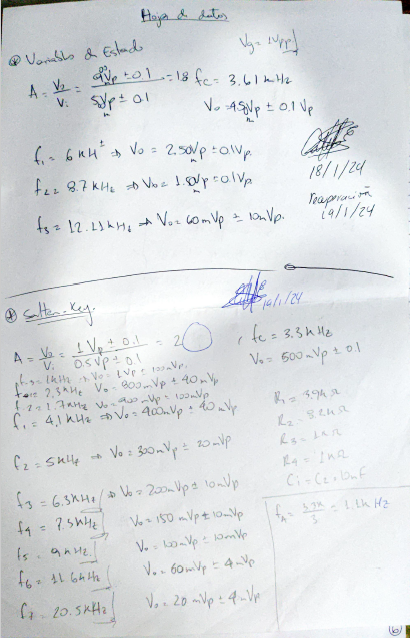 Hoja de datos
Variable de Estado
Vg = 1Vpp
A = Vo/Vi = 900Vp ± 0.1 / 50Vp ± 0.1 = 18 fc = 3.61 kHz
Vo = 450Vp ± 0.1 Vp
f1 = 6 kHz ⇒ Vo = 2.50Vp ± 0.1Vp.
f2 = 8.7 kHz ⇒ Vo = Vp ± 0.1Vp.
18/1/24
f3 = 12.11 kHz ⇒ Vo = 60mVp ± 10mVp.
recuperación
19/1/24
Sallen-Key.
19/1/24
A = Vo/Vi = 1Vp ± 0.1 / 0.5Vp ± 0.1 = 2
fc = 3.3 kHz
Vo = 500mVp ± 0.1
= 1kHz ⇒ Vo = 1Vp ± 100mVp.
= 2.3kHz Vo = 800mVp ± 40mVp
= 1.7kHz Vo = 900mVp ± 100mVp
f1 = 4.1 kHz ⇒ Vo = 400mVp ± 40mVp
R1 = 3.9kΩ
R2 = 8.2kΩ
R3 = 1kΩ
R4 = 1kΩ
C1 = C2 = 10nF
f2 = 5kHz ⇒ Vo = 300mVp ± 20mVp
f3 = 6.3kHz ⇒ Vo = 200mVp ± 10mVp
f4 = 7.5kHz Vo = 150 mVp ± 10mVp
f5 = 9kHz Vo = 100mVp ± 10mVp
f6 = 11.6kHz Vo = 60mVp ± 4mVp
f7 = 20.5kHz Vo = 20 mVp ± 4mVp
= 3.3k/3 = 1.1kHz
(6)